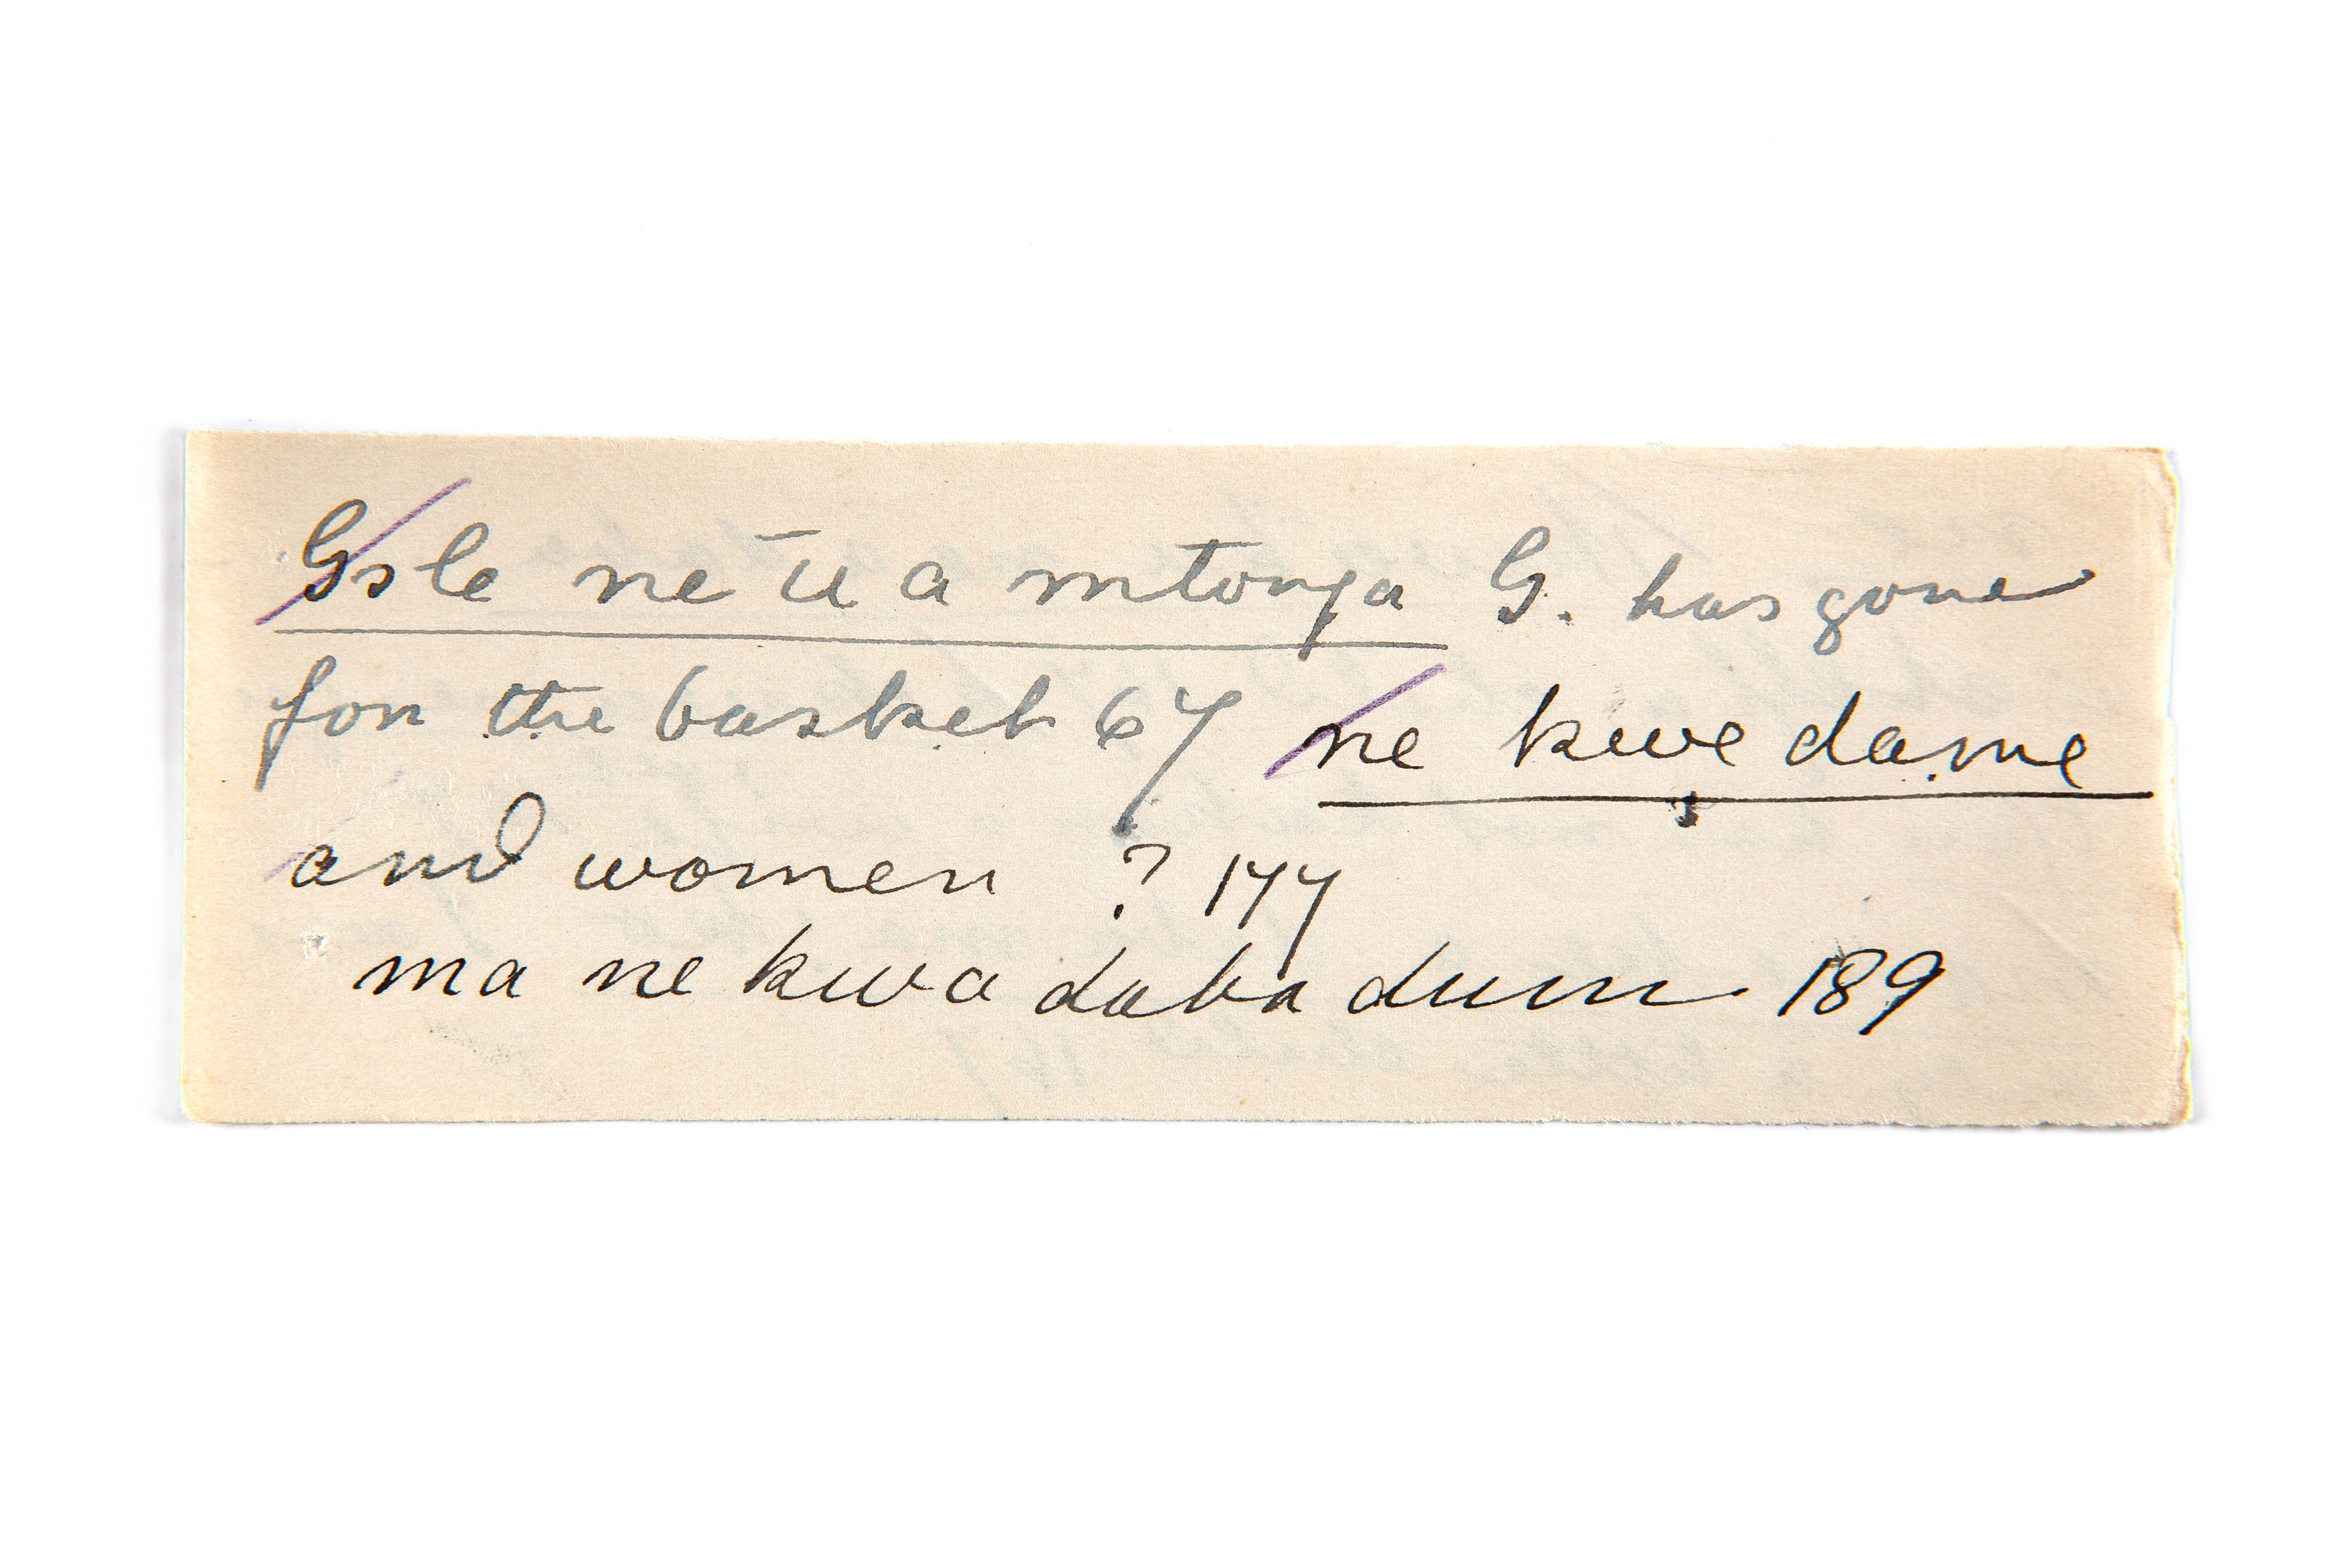 Gsle ne ū a mtonga G. has gone
for the basket 67 ne kwe dame
and women ? 177
ma ne kwa daba dum 189